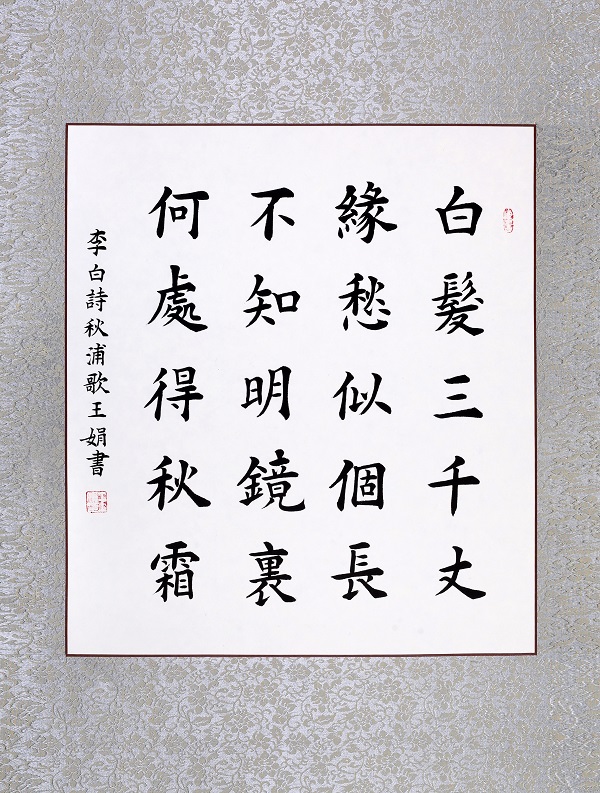 白髮三千丈
緣愁似個長
不知明鏡裏
何處得秋霜
李白詩秋浦歌王娟書